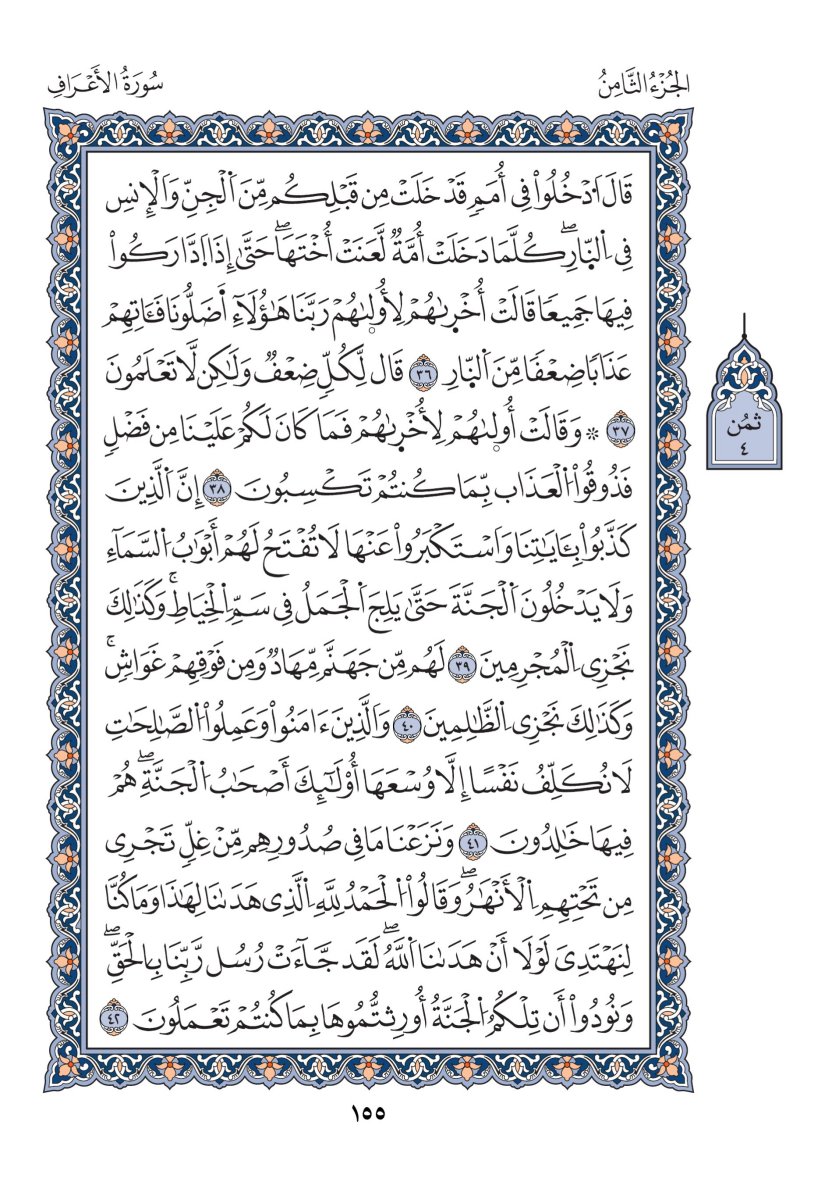 الجُزْءُ الثَّامِنُ
سُورَةُ الأَعْرَافِ
قَالَ اَدْخُلُواْ فِى أُمَمٖ قَدْ خَلَتْ مِن قَبْلِكُم مِّنَ اَلْجِنِّ وَالْإِنسِ
فِى اِلنّ۪ارِۖ كُلَّمَا دَخَلَتْ أُمَّةٌ لَّعَنَتْ أُخْتَهَاۖ حَتَّىٰ إِذَا اَدَّارَكُواْ
فِيهَا جَمِيعًا قَالَتْ أُخْر۪ىٰهُمْ لِأُول۪ىٰهُمْ رَبَّنَا هَٰؤُلَآءِ اَ۬ضَلُّونَا فَـَٔاتِهِمْ
عَذَابًا ضِعْفًا مِّنَ اَلنّ۪ارِ ٣٦ قَال لِّكُلّٖ ضِعْفٌ وَلَٰكِن لَّا تَعْلَمُونَ
٣٧ ۞ وَقَالَتْ أُول۪ىٰهُمْ لِأُخْر۪ىٰهُمْ فَمَا كَانَ لَكُمْ عَلَيْنَا مِن فَضْلٖ
فَذُوقُواْ اُلْعَذَاب بِّمَا كُنتُمْ تَكْسِبُونَ ٣٨ إِنَّ اَلَّذِينَ
كَذَّبُواْ بِـَٔايَٰتِنَا وَاسْتَكْبَرُواْ عَنْهَا لَا تُفْتَحُ لَهُمْ أَبْوَٰبُ اُلسَّمَآءِ
وَلَا يَدْخُلُونَ اَلْجَنَّةَ حَتَّىٰ يَلِجَ اَلْجَمَلُ فِى سَمِّ اِلْخِيَاطِۚ وَكَذَٰلِكَ
نَجْزِى اِلْمُجْرِمِينَ ٣٩ لَهُم مِّن جَهَنَّم مِّهَادٌ وَمِن فَوْقِهِمْ غَوَاشٖۚ
وَكَذَٰلِكَ نَجْزِى اِلظَّٰلِمِينَ ٤٠ وَالَّذِينَ ءَامَنُواْ وَعَمِلُواْ اُلصَّٰلِحَٰتِ
لَا نُكَلِّفُ نَفْسًا إِلَّا وُسْعَهَا أُوْلَٰٓئِكَ أَصْحَٰبُ اُلْجَنَّةِۖ هُمْ
فِيهَا خَٰلِدُونَ ٤١ وَنَزَعْنَا مَا فِى صُدُورِهِم مِّنْ غِلّٖ تَجْرِى
مِن تَحْتِهِمِ اِلْأَنْهَٰرُۖ وَقَالُواْ اُلْحَمْدُ لِلَّهِ اِلَّذِى هَدَىٰنَا لِهَٰذَا وَمَا كُنَّا
لِنَهْتَدِىَ لَوْلَا أَنْ هَدَىٰنَا اَللَّهُۖ لَقَد جَّآءَتْ رُسُل رَّبِّنَا بِالْحَقِّۖ
وَنُودُواْ أَن تِلْكُمُ اُلْجَنَّةُ أُورِثتُّمُوهَا بِمَا كُنتُمْ تَعْمَلُونَ ٤٢
ثُمُن
٤
١٥٥